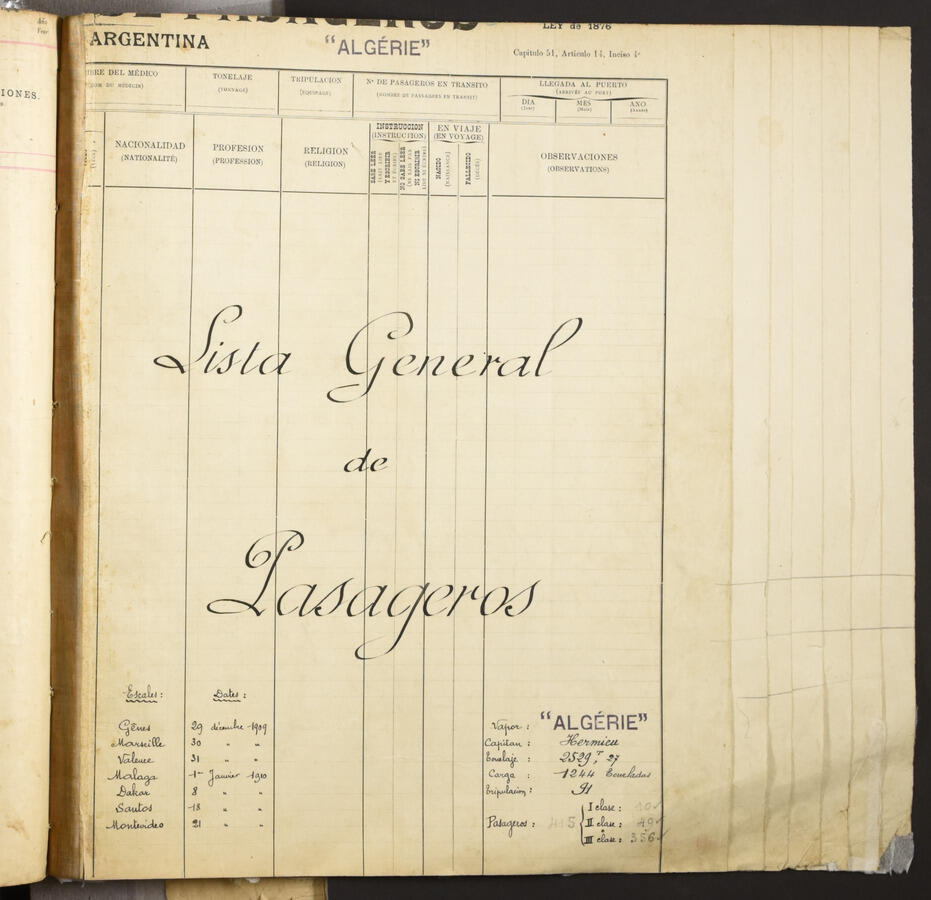 IONES.
DE PASAGEROS
LEY de 1876
ARGENTINA
"ALGÉRIE"
Capitulo 51, Articulo 14, Inciso 4º
BRE DEL MÉDICO
(NOM DU MÉDECIN)
TONELAJE
(TONNAGE)
TRIPULACION
(EQUIPAGE)
Nº DE PASAGEROS EN TRANSITO
(NOMBRE DE PASSAGERS EN TRANSIT)
LLEGADA AL PUERTO
(ARRIVÉE AU PORT)
DIA
(Jour)
MES
(Mois)
AÑO
(Année)
NACIONALIDAD
(NATIONALITÉ)
PROFESION
(PROFESSION)
RELIGION
(RELIGION)
INSTRUCCION
(INSTRUCTION)
SABE LEER
Y ESCRIBIR
NO SABE LEER
NI ESCRIBIR
EN VIAJE
(EN VOYAGE)
NACIDO
(NAISSANCE)
FALLECIDO
(DÉCÈS)
OBSERVACIONES
(OBSERVATIONS)
Lista General
de
Pasageros
Escales: Dates:
Gênes 29 décembre 1909
Marseille 30 " "
Valence 31 " "
Malaga 1er Janvier 1910
Dakar 8 " "
Santos 18 " "
Montevideo 21 " "
Vapor: "ALGÉRIE"
Capitan: Hermieu
Tonelaje: 2529 T, 27
Carga: 1244 Toneladas
Tripulacion: 91
Pasageros: 415
I clase: 10
II clase: 49
III clase: 356